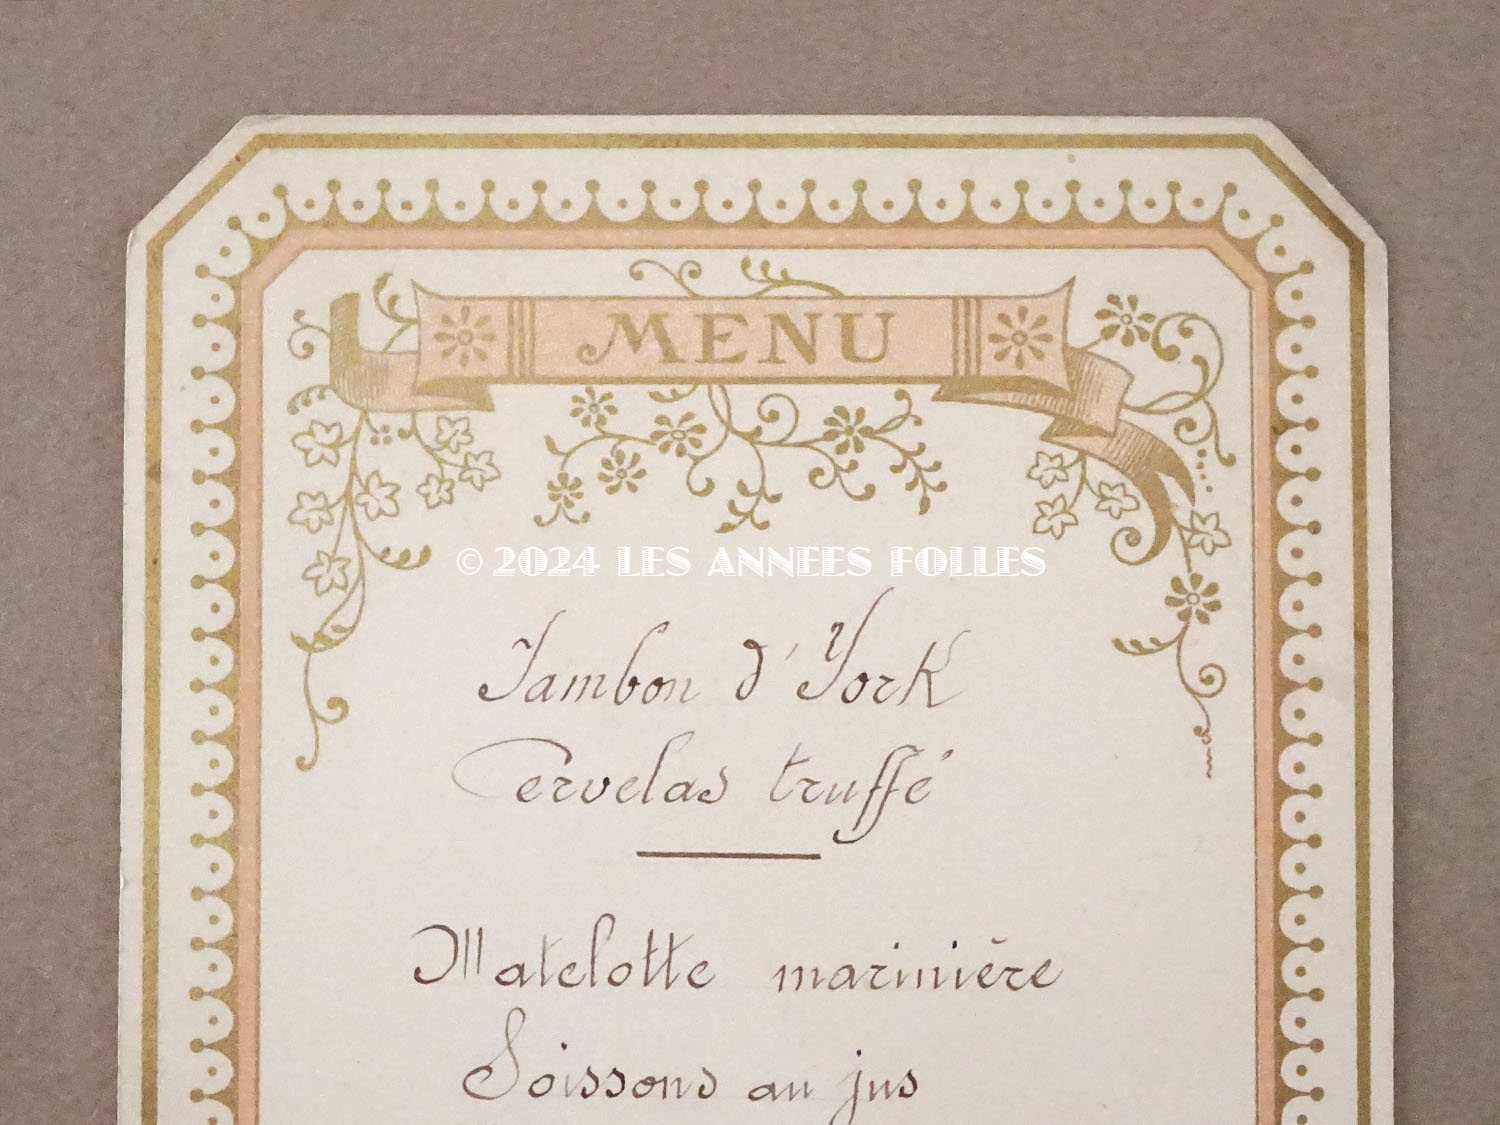 MENU
© 2024 LES ANNEES FOLLES
Jambon d'York
Cervelas truffé
Matelotte marinière
Soissons au jus